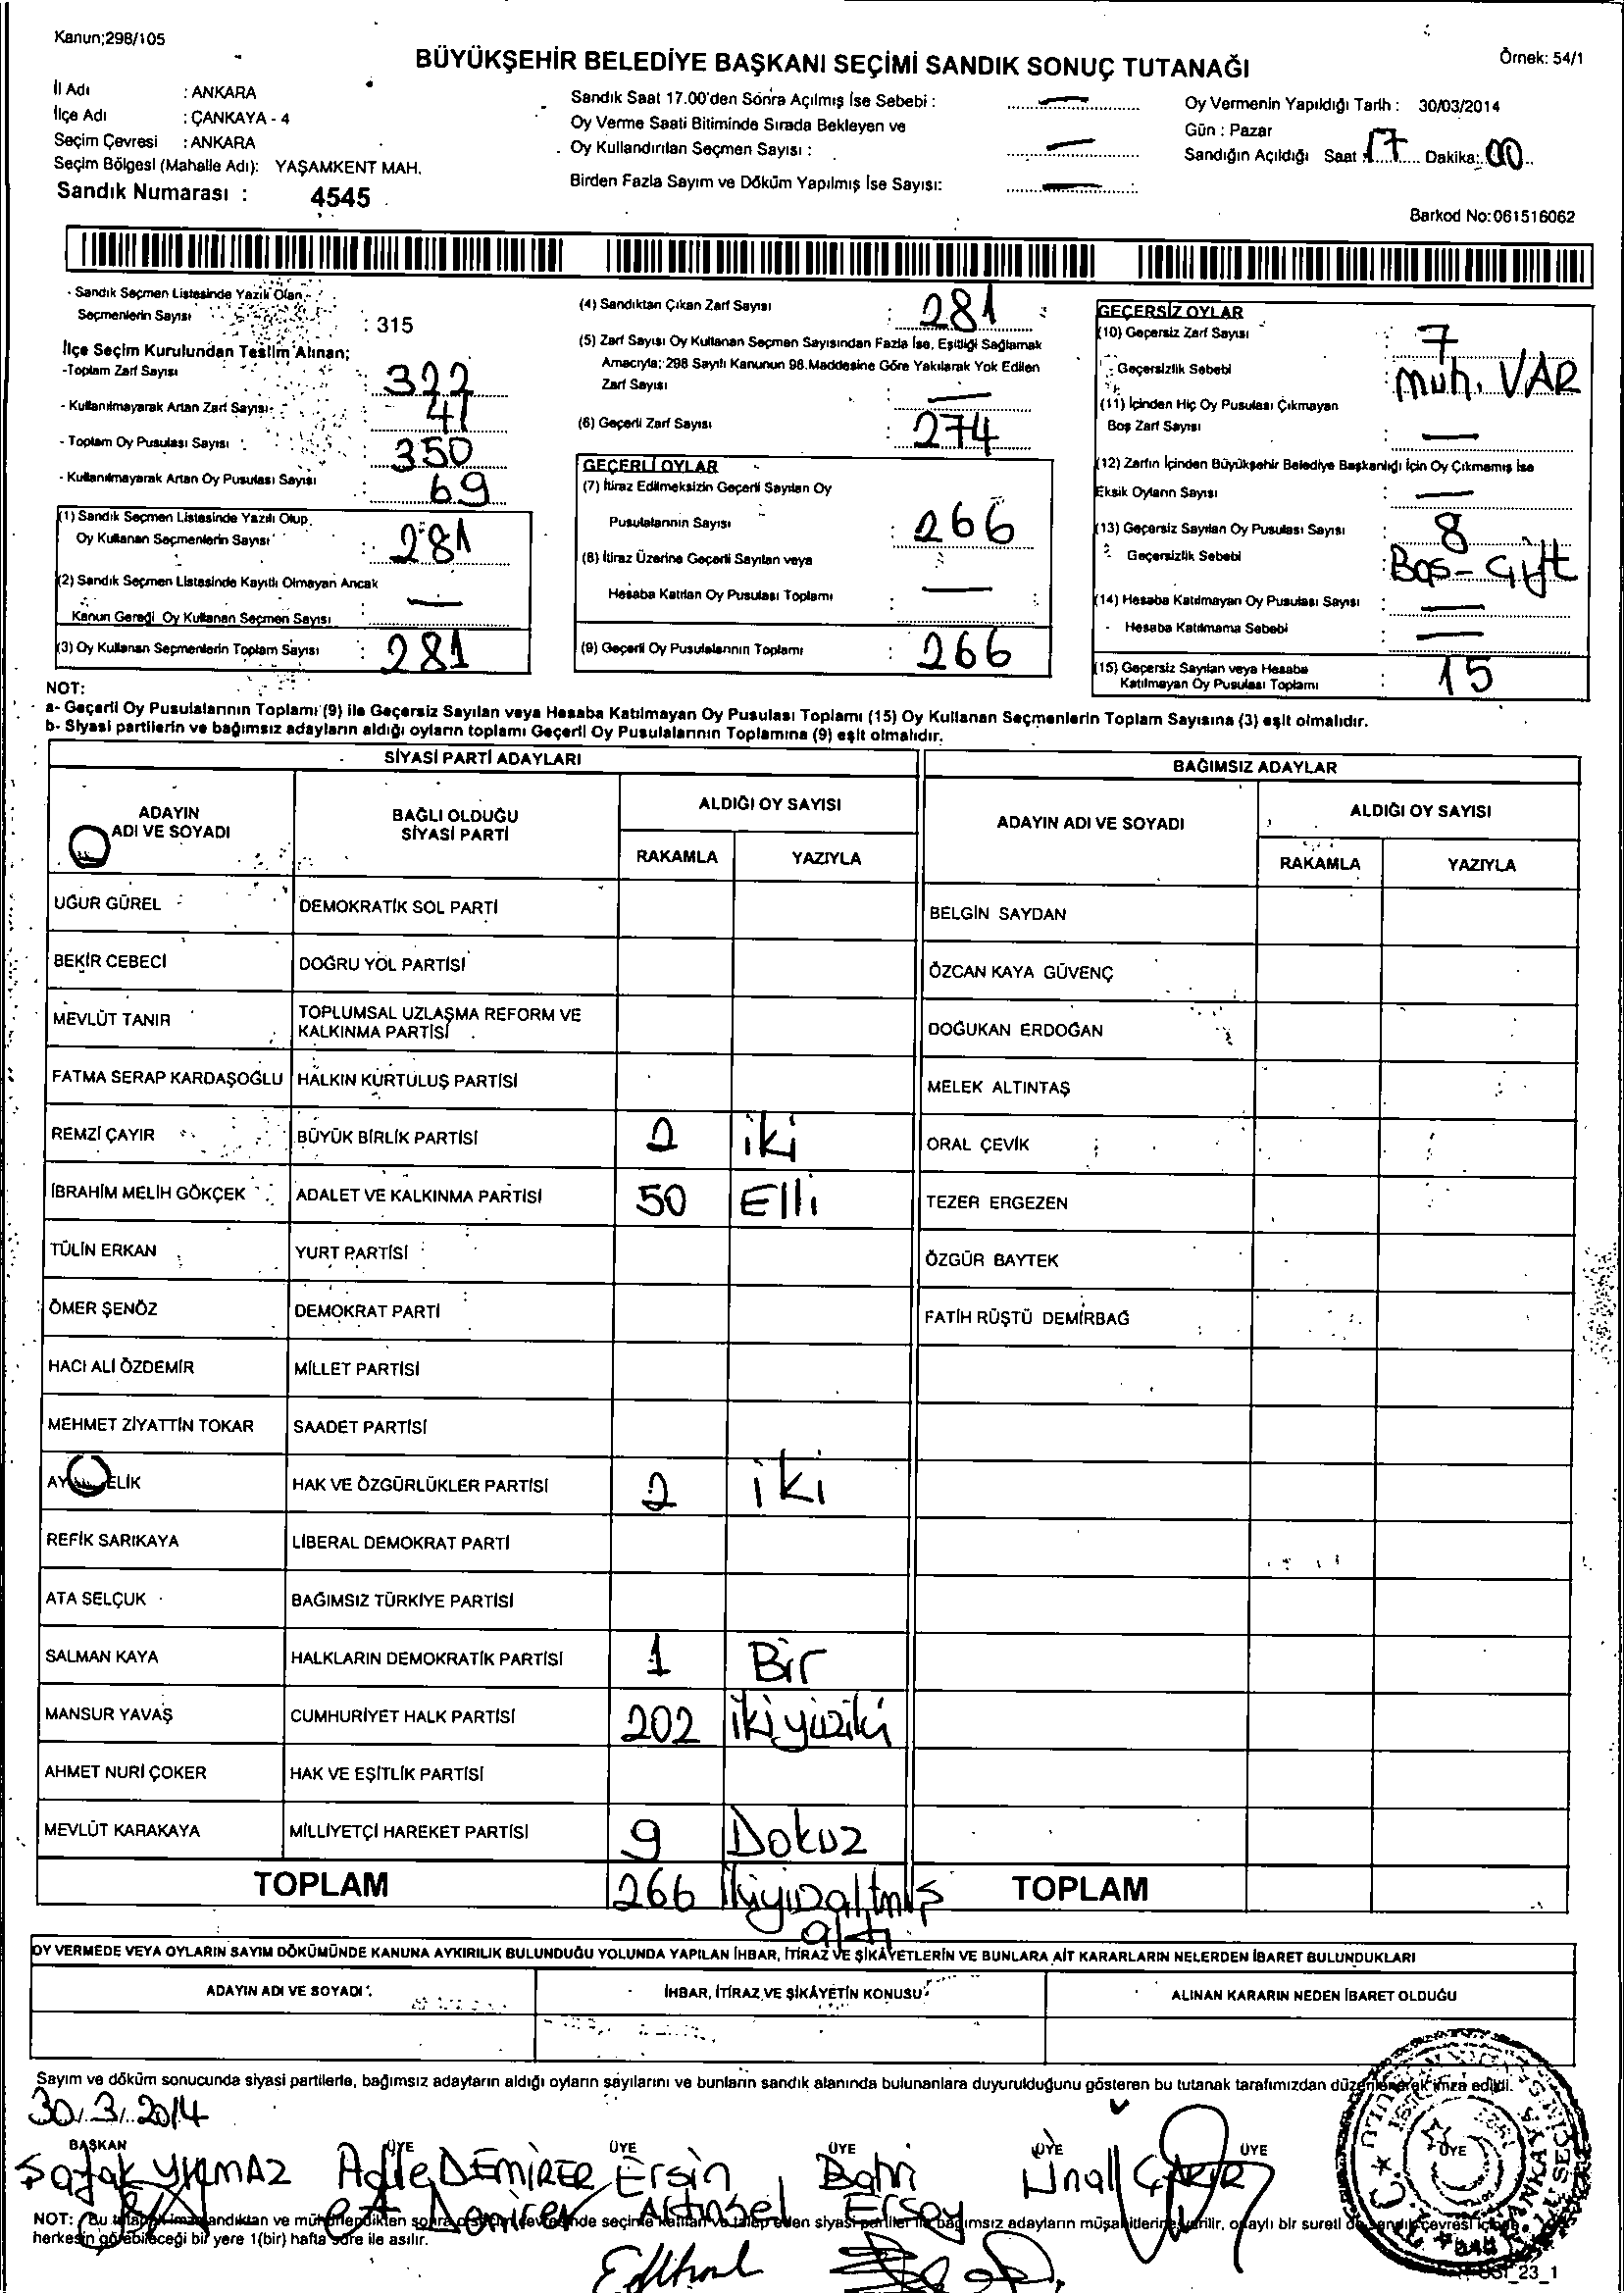 Kanun;298/105
BÜYÜKŞEHİR BELEDİYE BAŞKANI SEÇİMİ SANDIK SONUÇ TUTANAĞI
Örnek: 54/1
İl Adı : ANKARA
İlçe Adı : ÇANKAYA - 4
Seçim Çevresi : ANKARA
Seçim Bölgesi (Mahalle Adı): YAŞAMKENT MAH.
Sandık Numarası : 4545
Sandık Saat 17.00'den Sonra Açılmış İse Sebebi : —
Oy Verme Saati Bitiminde Sırada Bekleyen ve
Oy Kullandırılan Seçmen Sayısı : —
Birden Fazla Sayım ve Döküm Yapılmış İse Sayısı: —
Oy Vermenin Yapıldığı Tarih : 30/03/2014
Gün : Pazar
Sandığın Açıldığı Saat : 17 Dakika: 00
Barkod No:061516062
- Sandık Seçmen Listesinde Yazılı Olan
Seçmenlerin Sayısı : 315
İlçe Seçim Kurulundan Teslim Alınan;
-Toplam Zarf Sayısı : 322
- Kullanılmayarak Artan Zarf Sayısı : 41
- Toplam Oy Pusulası Sayısı : 350
- Kullanılmayarak Artan Oy Pusulası Sayısı : 69
(1) Sandık Seçmen Listesinde Yazılı Olup,
Oy Kullanan Seçmenlerin Sayısı : 281
(2) Sandık Seçmen Listesinde Kayıtlı Olmayan Ancak
Kanun Gereği Oy Kullanan Seçmen Sayısı —
(3) Oy Kullanan Seçmenlerin Toplam Sayısı : 281
(4) Sandıktan Çıkan Zarf Sayısı : 281
(5) Zarf Sayısı Oy Kullanan Seçmen Sayısından Fazla İse, Eşitliği Sağlamak
Amacıyla; 298 Sayılı Kanunun 98.Maddesine Göre Yakılarak Yok Edilen
Zarf Sayısı : —
(6) Geçerli Zarf Sayısı : 274
GEÇERLİ OYLAR
(7) İtiraz Edilmeksizin Geçerli Sayılan Oy
Pusulalarının Sayısı : 266
(8) İtiraz Üzerine Geçerli Sayılan veya
Hesaba Katılan Oy Pusulası Toplamı : —
(9) Geçerli Oy Pusulalarının Toplamı : 266
GEÇERSİZ OYLAR
(10) Geçersiz Zarf Sayısı : 7
- Geçersizlik Sebebi : Müh. VAR
(11) İçinden Hiç Oy Pusulası Çıkmayan
Boş Zarf Sayısı : —
(12) Zarfın İçinden Büyükşehir Belediye Başkanlığı İçin Oy Çıkmamış İse
Eksik Oyların Sayısı : —
(13) Geçersiz Sayılan Oy Pusulası Sayısı : 8
- Geçersizlik Sebebi : Boş - Çift
(14) Hesaba Katılmayan Oy Pusulası Sayısı : —
- Hesaba Katılmama Sebebi : —
(15) Geçersiz Sayılan veya Hesaba
Katılmayan Oy Pusulası Toplamı : 15
NOT:
a- Geçerli Oy Pusulalarının Toplamı (9) ile Geçersiz Sayılan veya Hesaba Katılmayan Oy Pusulası Toplamı (15) Oy Kullanan Seçmenlerin Toplam Sayısına (3) eşit olmalıdır.
b- Siyasi partilerin ve bağımsız adayların aldığı oyların toplamı Geçerli Oy Pusulalarının Toplamına (9) eşit olmalıdır.
SİYASİ PARTİ ADAYLARI
BAĞIMSIZ ADAYLAR
ADAYIN ADI VE SOYADI
BAĞLI OLDUĞU SİYASİ PARTİ
ALDIĞI OY SAYISI
RAKAMLA YAZIYLA
ADAYIN ADI VE SOYADI
ALDIĞI OY SAYISI
RAKAMLA YAZIYLA
UĞUR GÜREL DEMOKRATİK SOL PARTİ BELGİN SAYDAN
BEKİR CEBECİ DOĞRU YOL PARTİSİ ÖZCAN KAYA GÜVENÇ
MEVLÜT TANIR TOPLUMSAL UZLAŞMA REFORM VE KALKINMA PARTİSİ DOĞUKAN ERDOĞAN
FATMA SERAP KARDAŞOĞLU HALKIN KURTULUŞ PARTİSİ MELEK ALTINTAŞ
REMZİ ÇAYIR BÜYÜK BİRLİK PARTİSİ 2 iki ORAL ÇEVİK
İBRAHİM MELİH GÖKÇEK ADALET VE KALKINMA PARTİSİ 50 Elli TEZER ERGEZEN
TÜLİN ERKAN YURT PARTİSİ ÖZGÜR BAYTEK
ÖMER ŞENÖZ DEMOKRAT PARTİ FATİH RÜŞTÜ DEMİRBAĞ
HACI ALİ ÖZDEMİR MİLLET PARTİSİ
MEHMET ZİYATTİN TOKAR SAADET PARTİSİ
HAK VE ÖZGÜRLÜKLER PARTİSİ 2 iki
REFİK SARIKAYA LİBERAL DEMOKRAT PARTİ
ATA SELÇUK BAĞIMSIZ TÜRKİYE PARTİSİ
SALMAN KAYA HALKLARIN DEMOKRATİK PARTİSİ 1 Bir
MANSUR YAVAŞ CUMHURİYET HALK PARTİSİ 202 İkiyüziki
AHMET NURİ ÇOKER HAK VE EŞİTLİK PARTİSİ
MEVLÜT KARAKAYA MİLLİYETÇİ HAREKET PARTİSİ 9 Dokuz
TOPLAM 266 İkiyüzaltmış altı TOPLAM
OY VERMEDE VEYA OYLARIN SAYIM DÖKÜMÜNDE KANUNA AYKIRILIK BULUNDUĞU YOLUNDA YAPILAN İHBAR, İTİRAZ VE ŞİKÂYETLERİN VE BUNLARA AİT KARARLARIN NELERDEN İBARET BULUNDUKLARI
ADAYIN ADI VE SOYADI İHBAR, İTİRAZ VE ŞİKÂYETİN KONUSU ALINAN KARARIN NEDEN İBARET OLDUĞU
Sayım ve döküm sonucunda siyasi partilerle, bağımsız adayların aldığı oyların sayılarını ve bunların sandık alanında bulunanlara duyurulduğunu gösteren bu tutanak tarafımızdan düzenlenerek imza edildi.
30.3.2014
BAŞKAN ÜYE ÜYE ÜYE ÜYE ÜYE ÜYE
Şafak YILMAZ Adile DEMİRER Ersin Altınsel Bahri Ersoy Ünal
NOT: Bu tutanak imzalandıktan ve mühürlendikten sonra o seçim çevresinde seçime katılan ve talep eden siyasi partiler ile bağımsız adayların müşahitlerine verilir, onaylı bir sureti de sandık çevresi içinde
herkesin görebileceği bir yere 1(bir) hafta süre ile asılır.